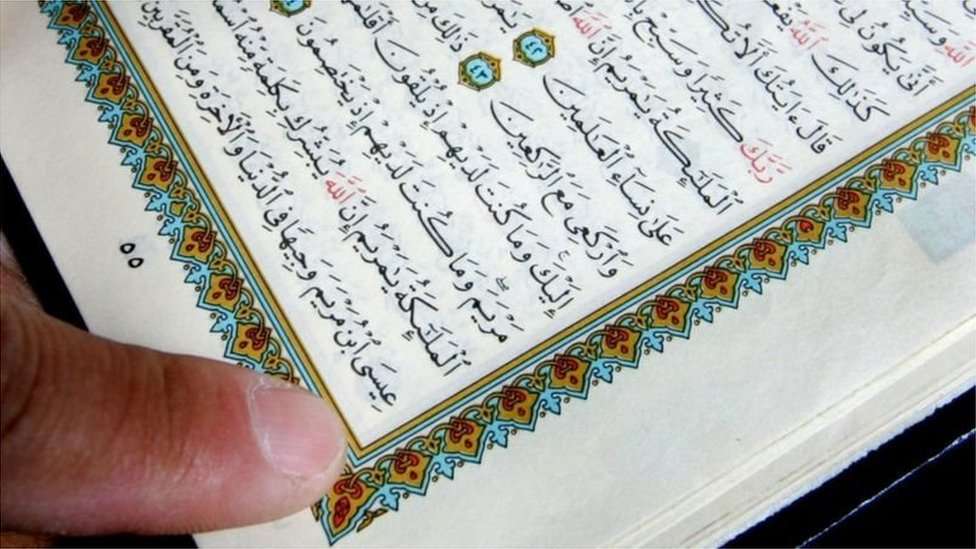 ٱللَّهِ
أَنَّىٰ يَكُونُ لِى
كَذَٰلِكَ ٱللَّهُ
قَالَ ءَايَتُكَ أَلَّا
رَّبَّكَ كَثِيرًا وَسَبِّحْ
ٱلْمَلَٰٓئِكَةُ يَٰمَرْيَمُ إِنَّ ٱللَّهَ
عَلَىٰ نِسَآءِ ٱلْعَٰلَمِينَ ٤٢
وَٱرْكَعِى مَعَ ٱلرَّٰكِعِينَ ٤٣ ذَٰلِكَ مِنْ
إِلَيْكَ وَمَا كُنتَ لَدَيْهِمْ إِذْ يُلْقُونَ
مَرْيَمَ وَمَا كُنتَ لَدَيْهِمْ إِذْ يَخْتَصِمُونَ
ٱلْمَلَٰٓئِكَةُ يَٰمَرْيَمُ إِنَّ ٱللَّهَ يُبَشِّرُكِ بِكَلِمَةٍ مِّنْهُ
عِيسَى ٱبْنُ مَرْيَمَ وَجِيهًا فِى ٱلدُّنْيَا وَٱلْءَاخِرَةِ وَمِنَ ٱلْمُقَرَّبِينَ
٥٥